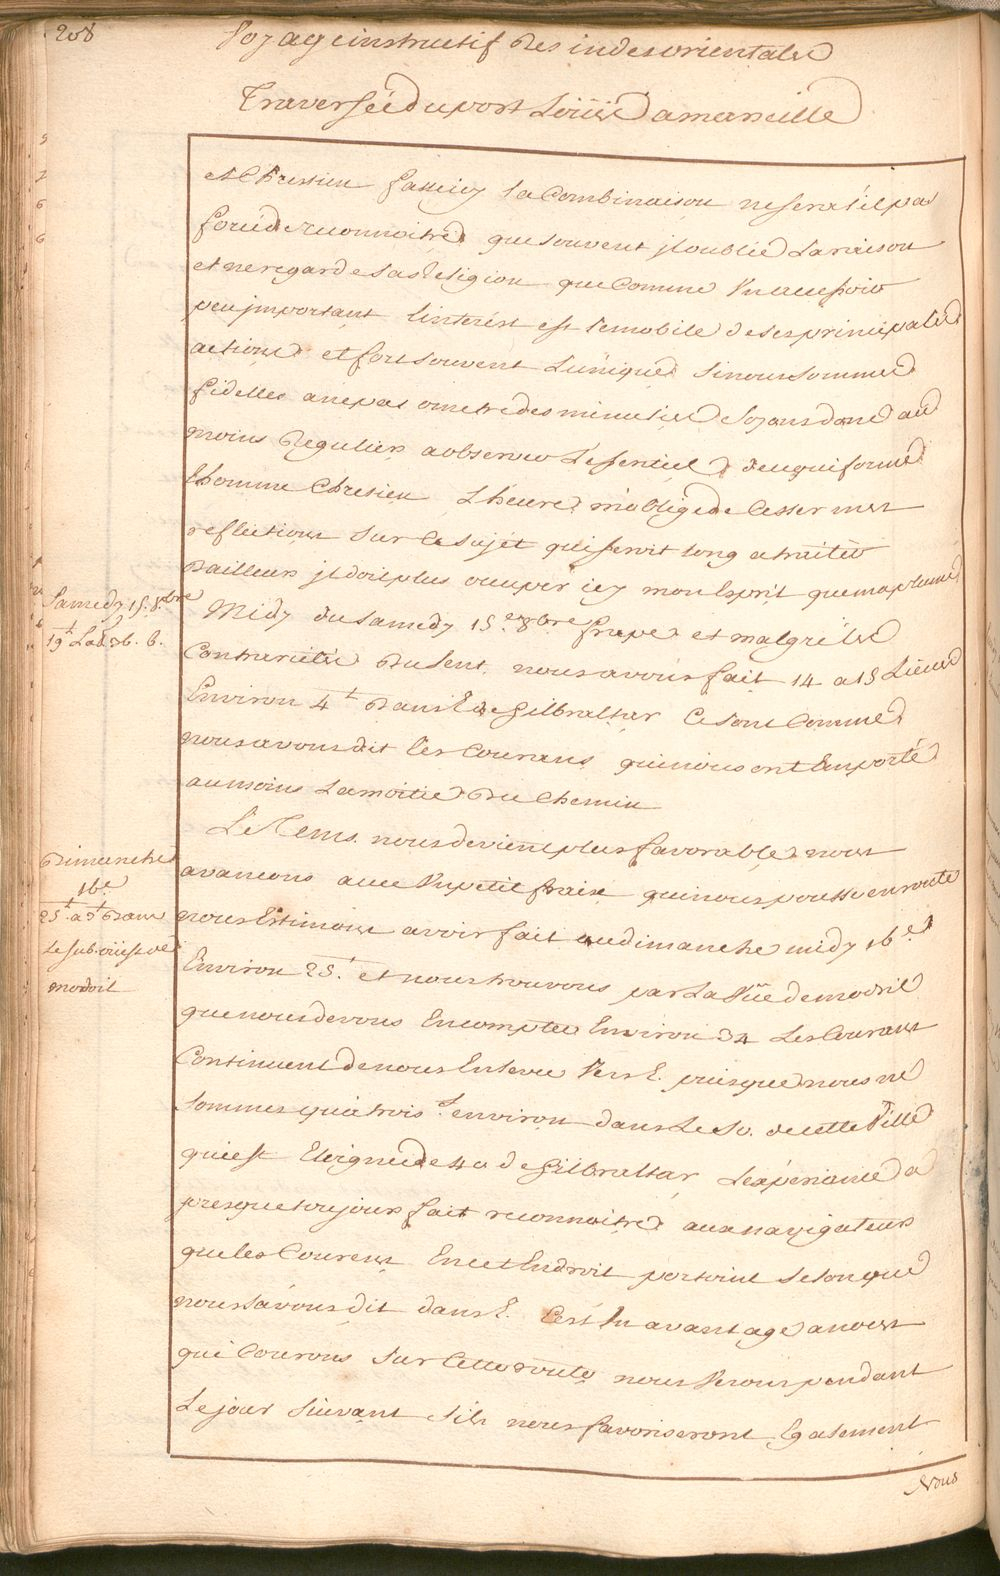 208
Voyage instructif des indes orientales
Traversée du port Loüis a marseille
et Chrestien fasse icy sa Combinaison ne sera t'il pas
forcé de reconnoitre que souvent jl oublie La raison
et ne regarde sa Religion que Comme Vn accessoire
peu jmportant linterest est le mobile de ses principales
actions et fort souvent L'unique si nous sommes
fidelles a ne pas omettre des minuties soyons donc au
moins Regulier a observer L'essentiel de ce qui forme
l'homme Chrestien L'heure m'oblige de Cesser mes
reflections sur Ce sujet qui seroit long a traiter
D'ailleurs jl doit plus occuper icy mon Esprit que ma plume
Samedy 15. 8.bre
19t Lat 36. 6.
Midy du Samedy 15e 8bre frape et malgré les
Contrarietés Du Vent nous avons fait 14 a 15 Lieues
Environ 4t Dans E de Gilbraltar Ce sont Comme
nous avons dit les Courans qui nous ont Emporté
au moins La moitié Du Chemin
Le Tems nous devient plus favorable nous
Dimanche
16e
25t a 3t Dans
Le sud oüest de
modril
avancons avec Vn petit frais qui nous pousse en route
nous Estimons avoir fait au dimanche midy 16e
Environ 25t et nous trouvons par La Vüe de modril
que nous devons En compter Environ 34 Les Courans
Continuent de nous Enlever Vers E. puisque nous ne
sommes qu'a trois t environ dans Le So. de cette Ville
qui est Eloignée de 40 de Gilbraltar L'experiance a
presque toujours fait reconnoitre aux navigateurs
que les Courens En cet Endroit portoint selon que
nous L'avons dit dans E. C'est Vn avantage a nous
qui Courons sur Cette route nous Verons pendant
Le jour suivant s'ils nous favoriseront Egalement
Nous